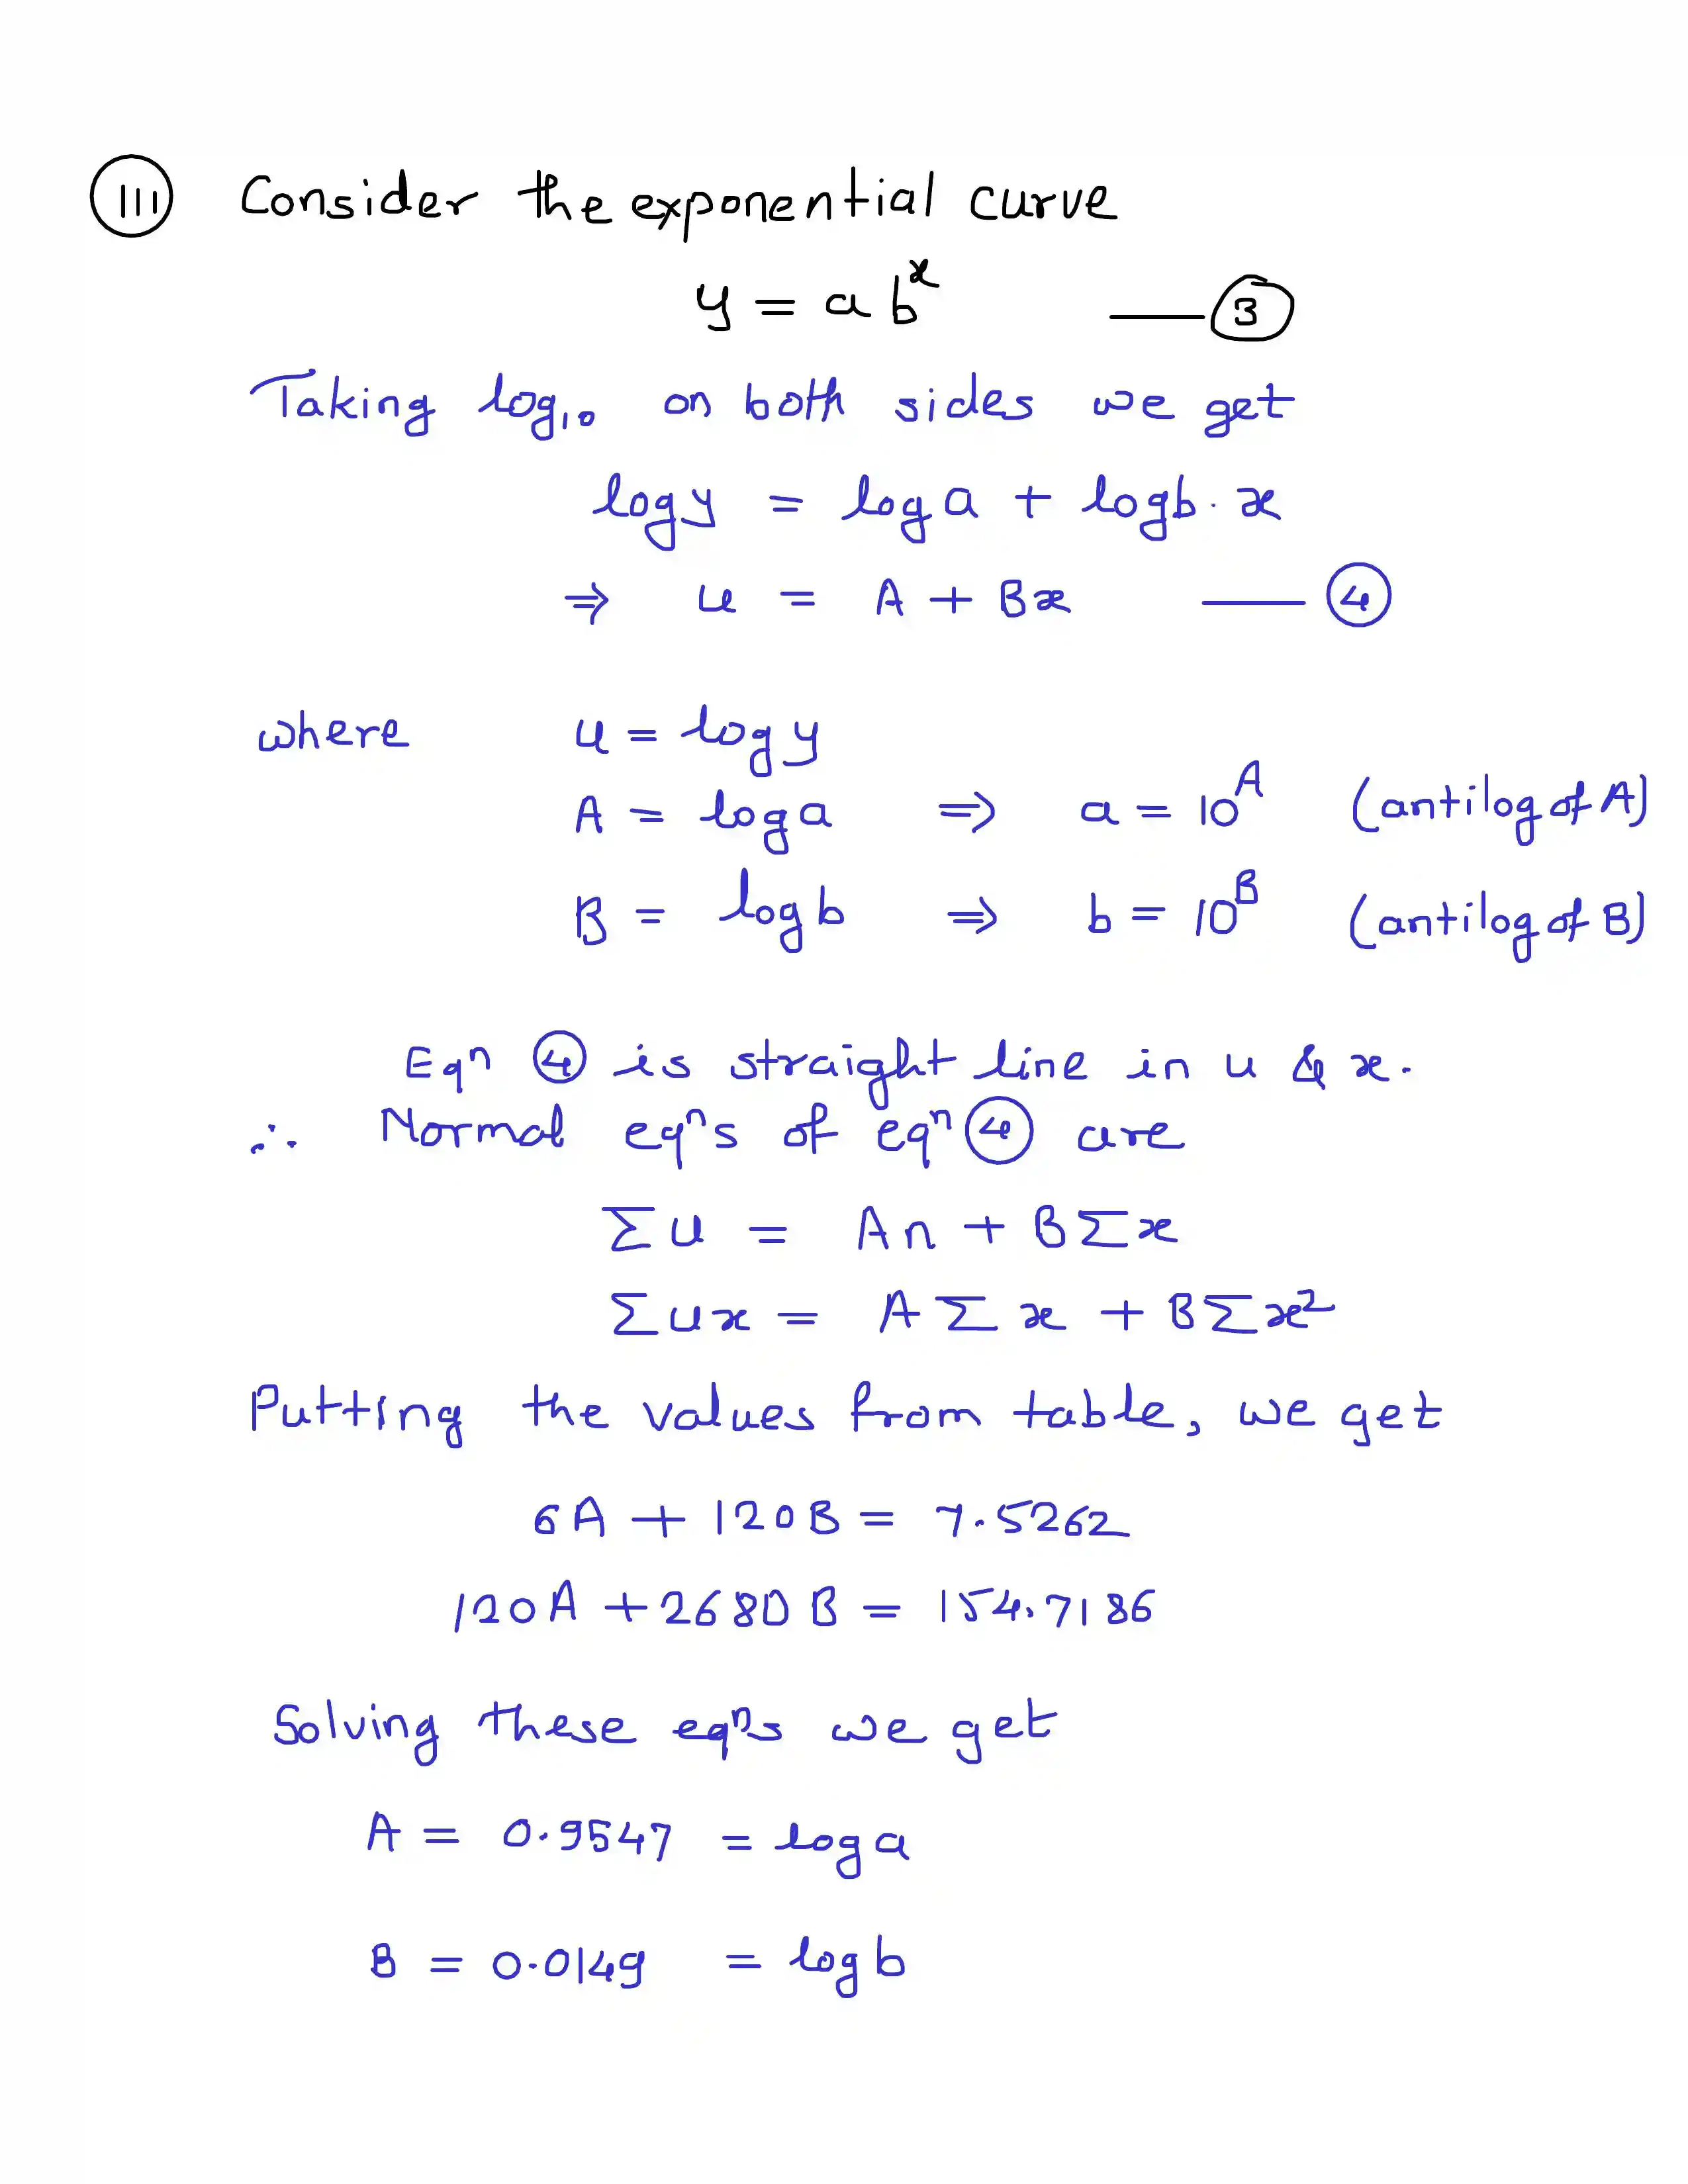 III Consider the exponential curve
y = a b^x —— 3
Taking log₁₀ on both sides we get
log y = log a + log b · x
⇒ u = A + Bx —— 4
where u = log y
A = log a ⇒ a = 10^A (antilog of A)
B = log b ⇒ b = 10^B (antilog of B)
Eqⁿ 4 is straight line in u & x.
∴ Normal eqⁿs of eqⁿ 4 are
Σu = An + BΣx
Σux = AΣx + BΣx²
Putting the values from table, we get
6A + 120B = 7.5262
120A + 2680B = 154.7186
Solving these eqⁿs we get
A = 0.9547 = log a
B = 0.0149 = log b